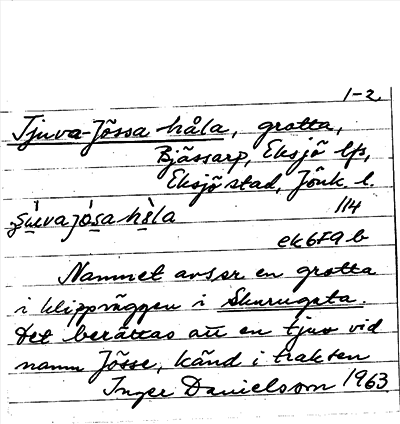 1-2.
Tjuva-Jössa håla, grotta,
Bjässarp, Eksjö lfs,
Eksjö stad, Jönk. l.
114
ek6F9b
Namnet avser en grotta
i klippväggen i Skurugata.
Det berättas att en tjuv vid
namn Jösse, känd i trakten
Inger Danielsson 1963